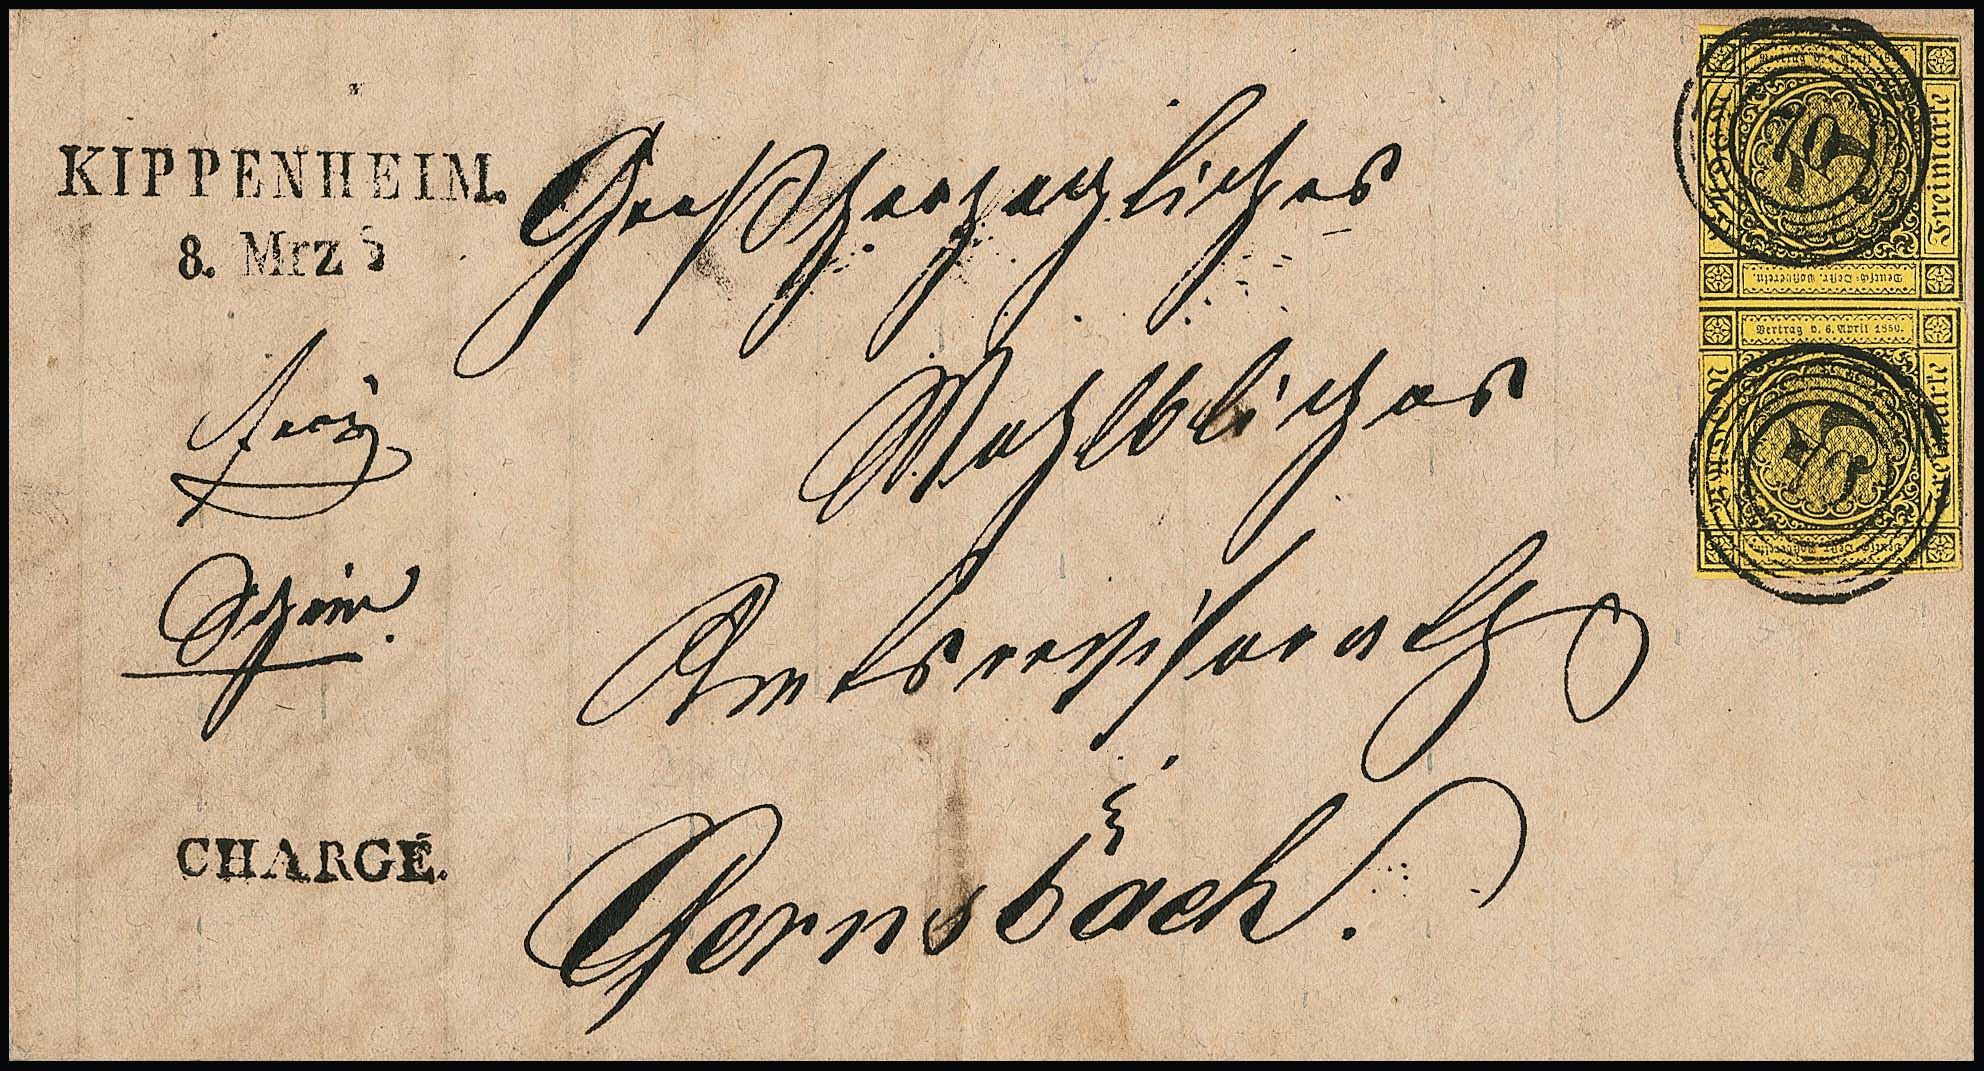 KIPPENHEIM.
8. Mrz 5
frei
Schein.
CHARGÉ.
Großherzogliches
Wohllöbliches
Amtsrevisorath
Gernsbach.
Freimarte
Deutsch-Oestr. Postverein.
Vertrag v. 6. April 1850.
Freimarke
Deutsch-Oestr. Postverein.